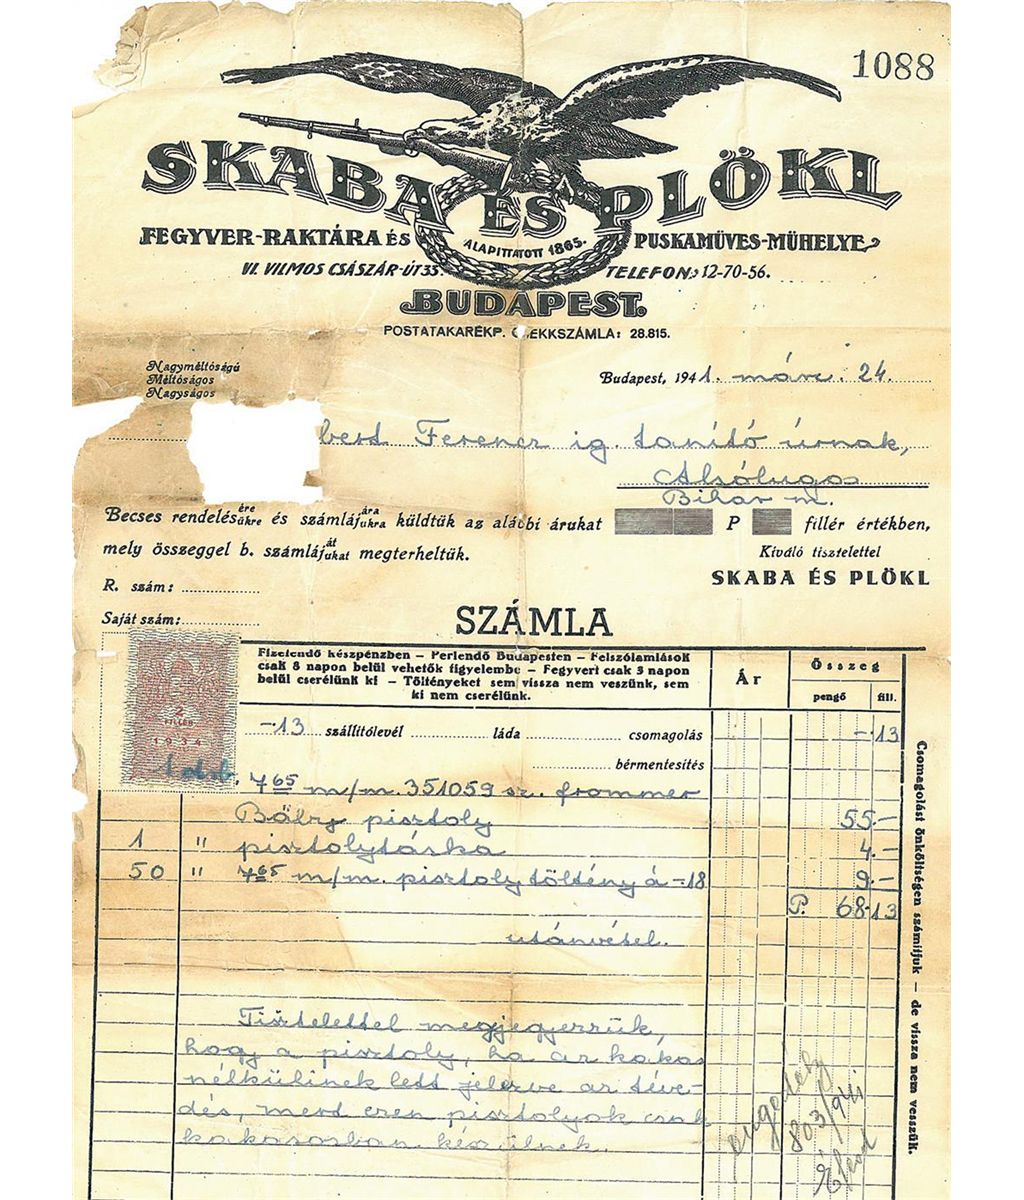 1088
SKABA ÉS PLÖKL
FEGYVER-RAKTÁRA ÉS PUSKAMŰVES-MŰHELYE
ALAPITTATOTT 1865.
VI. VILMOS CSÁSZÁR-ÚT 33. TELEFON: 12-70-56.
BUDAPEST.
POSTATAKARÉKP. EKKSZÁMLA: 28.815.
Nagyméltóságú
Méltóságos
Nagyságos
Budapest, 1941. márc. 24.
bert Ferencz ig. tanító úrnak,
Alsólugos
Bihar m.
Becses rendelésére ükre és számlájára ukra küldtük az alábbi árukat P fillér értékben,
mely összeggel b. számláját ukat megterheltük.
Kiváló tisztelettel
SKABA ÉS PLÖKL
R. szám:
Saját szám:
SZÁMLA
Fizetendő készpénzben – Perlendő Budapesten – Felszólamlások
csak 8 napon belül vehetők figyelembe – Fegyvert csak 3 napon
belül cserélünk ki – Töltényeket sem vissza nem veszünk, sem
ki nem cserélünk.
Ár
Összeg
pengő fill.
2
FILLÉR
1934
-·13 szállítólevél láda csomagolás -·13
bérmentesítés
1 drb. 7.65 m/m. 351059 sz. frommer
Baby pisztoly 55.-
1 " pisztolytáska 4.-
50 " 7.65 m/m. pisztoly töltény á -18 9.-
P. 68·13
utánvétel.
Tisztelettel megjegyezzük,
hogy a pisztoly, ha az kakas
nélkülinek lett jelezve az téve-
dés, mert ezen pisztolyok csak
kakasosban készülnek.
engedély
803/941
Csomagolást önköltségen számítjuk – de vissza nem vesszük.